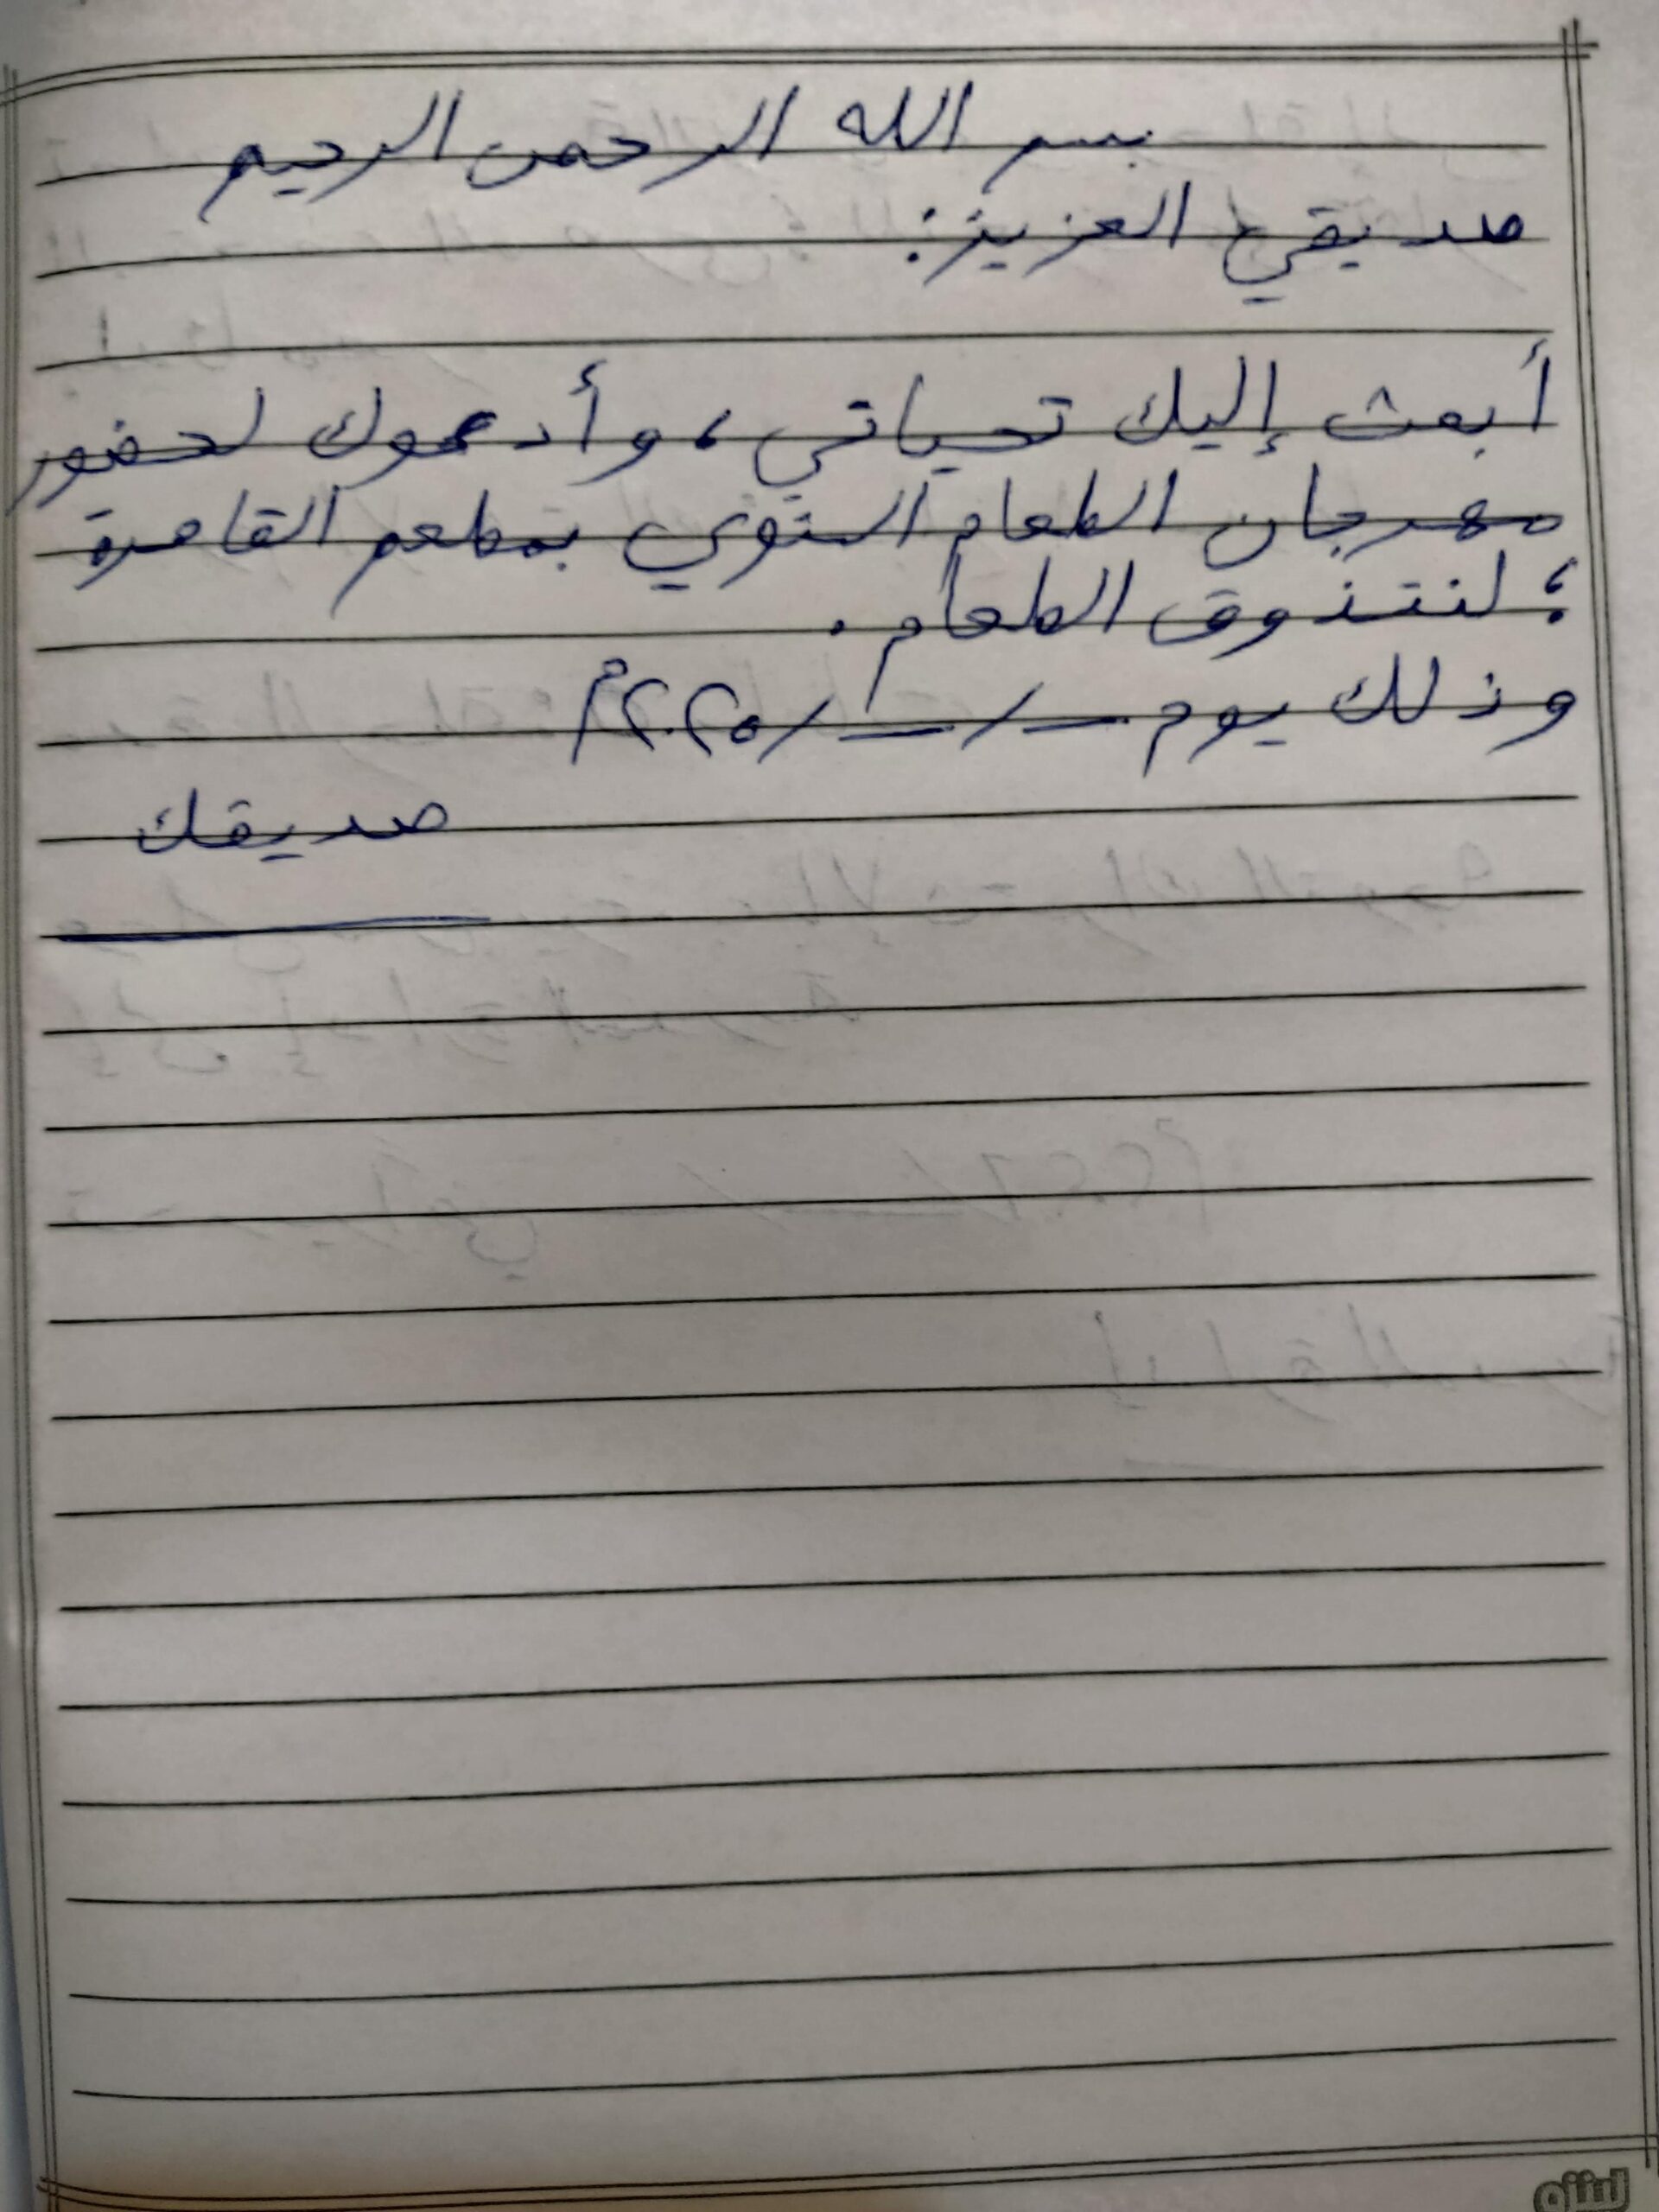 بسم الله الرحمن الرحيم
صديقي العزيز:
أبعث إليك تحياتي، وأدعوك لحضور
مهرجان الطعام السنوي بمطعم القاهرة
؛ لنتذوق الطعام.
وذلك يوم __/__/٢٠٢٥م
صديقك